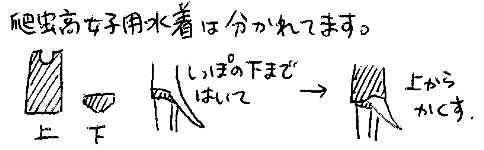 爬虫高女子用水着は分かれてます。
上
下
しっぽの下まで
はいて
→
上から
かくす.